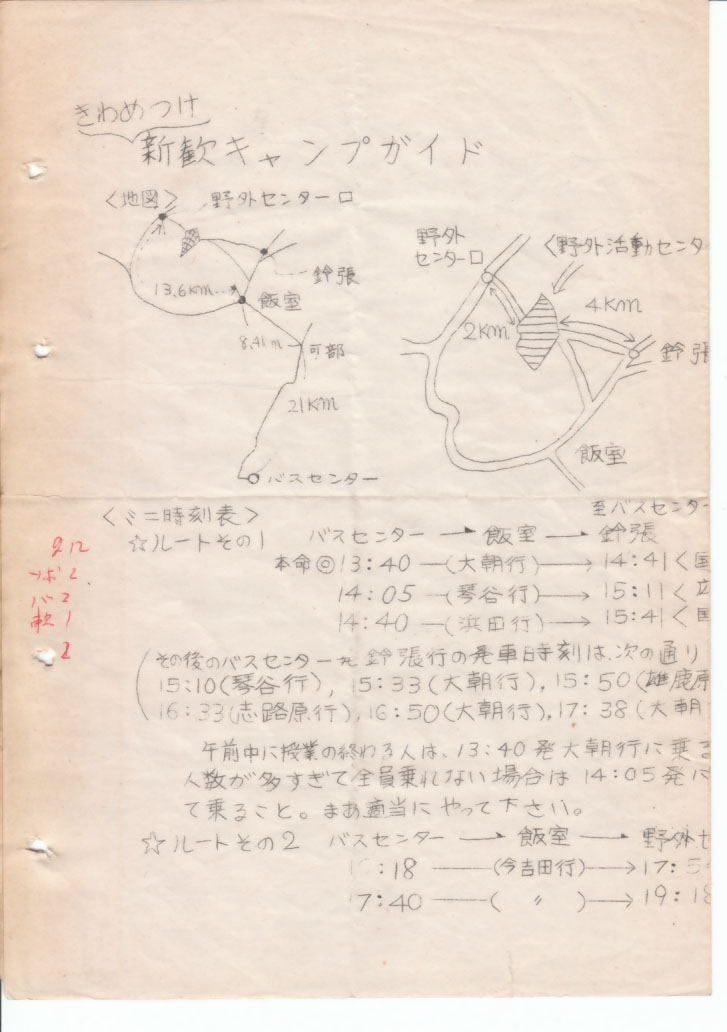 きわめつけ
新歓キャンプガイド
〈地図〉
野外センター口
鈴張
13.6KM
飯室
8.4KM
可部
21KM
バスセンター
野外
センター口
〈野外活動センタ
2KM
4KM
鈴張
飯室
至バスセンター
〈ミニ時刻表〉
☆ルートその1 バスセンター → 飯室 → 鈴張
本命◎13:40 ―(大朝行)→ 14:41〈国
14:05 ―(琴谷行)→ 15:11〈広
14:40 ―(浜田行)→ 15:41〈国
(その後のバスセンター発鈴張行の発車時刻は、次の通り
15:10(琴谷行), 15:33(大朝行), 15:50(雄鹿原
16:33(志路原行), 16:50(大朝行), 17:38(大朝
午前中に授業の終わる人は、13:40発大朝行に乗る
人数が多すぎて全員乗れない場合は14:05発に
て乗ること。まあ適当にやって下さい。
☆ルートその2 バスセンター → 飯室 → 野外セ
:18 ―(今吉田行)→ 17:5
17:40 ―( 〃 )→ 19:18